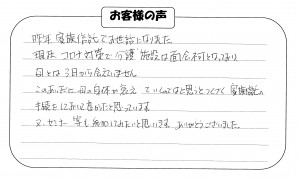 お客様の声
昨年 家族信託でお世話になりました
現在 コロナ対策で介護施設は面会不可となっており
母とは3月から会えていません
このあいだに母の身体が衰えていくのではと思うとつくづく家族信託の
手続をしておいて良かったと思っています
又、セミナー等も参加してみたいと思います。ありがとうございました。